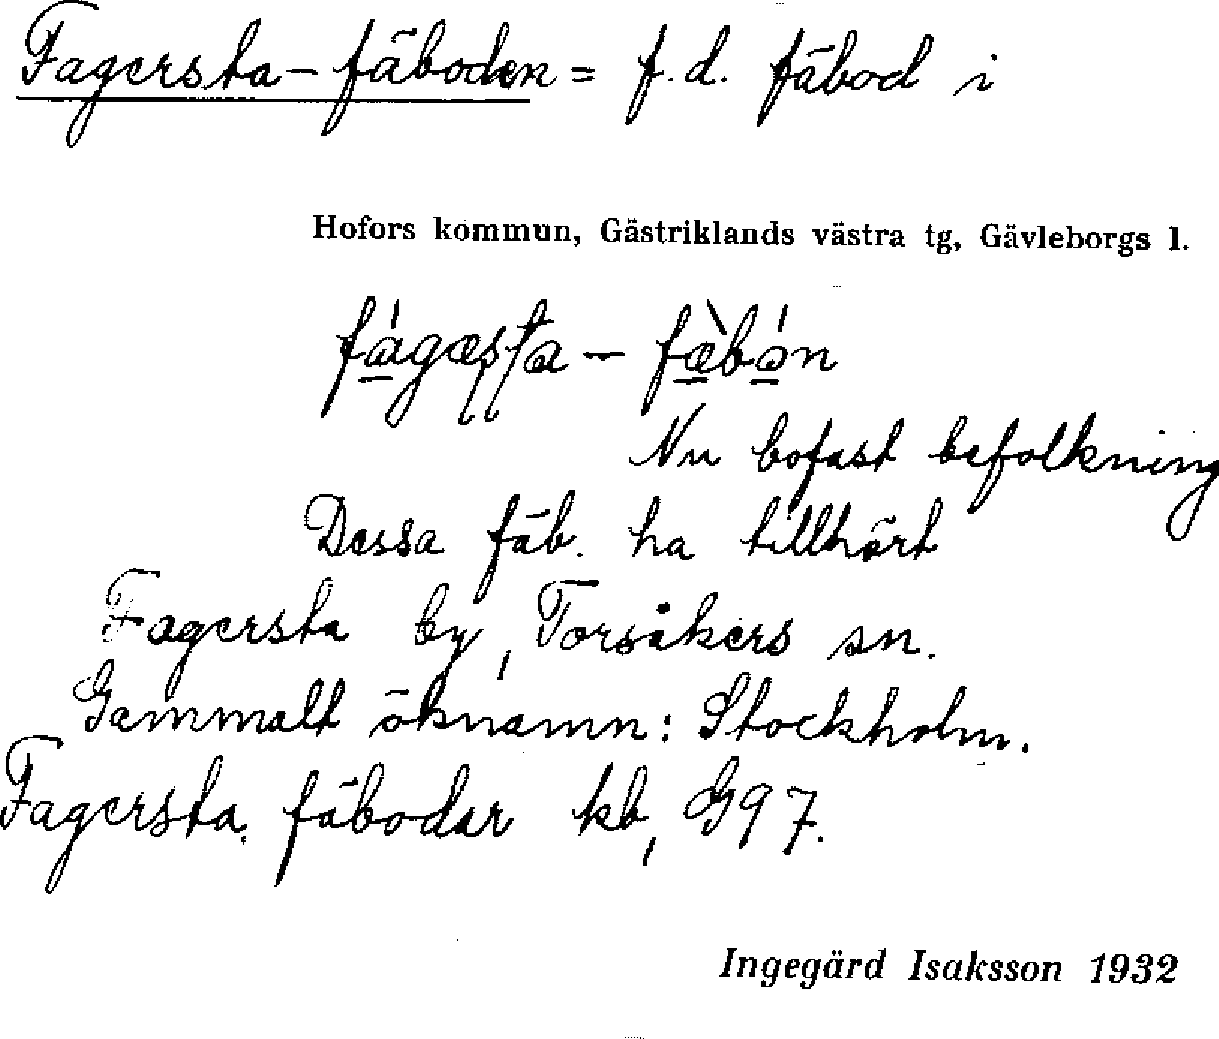 Fagersta-fäboden = f.d. fäbod i
Hofors kommun, Gästriklands västra tg, Gävleborgs l.
Nu bofast befolkning
Dessa fäb. ha tillhört
Fagersta by, Torsåkers sn.
Gammalt öknamn: Stockholm.
Fagersta fäbodar kb, G97.
Ingegärd Isaksson 1932